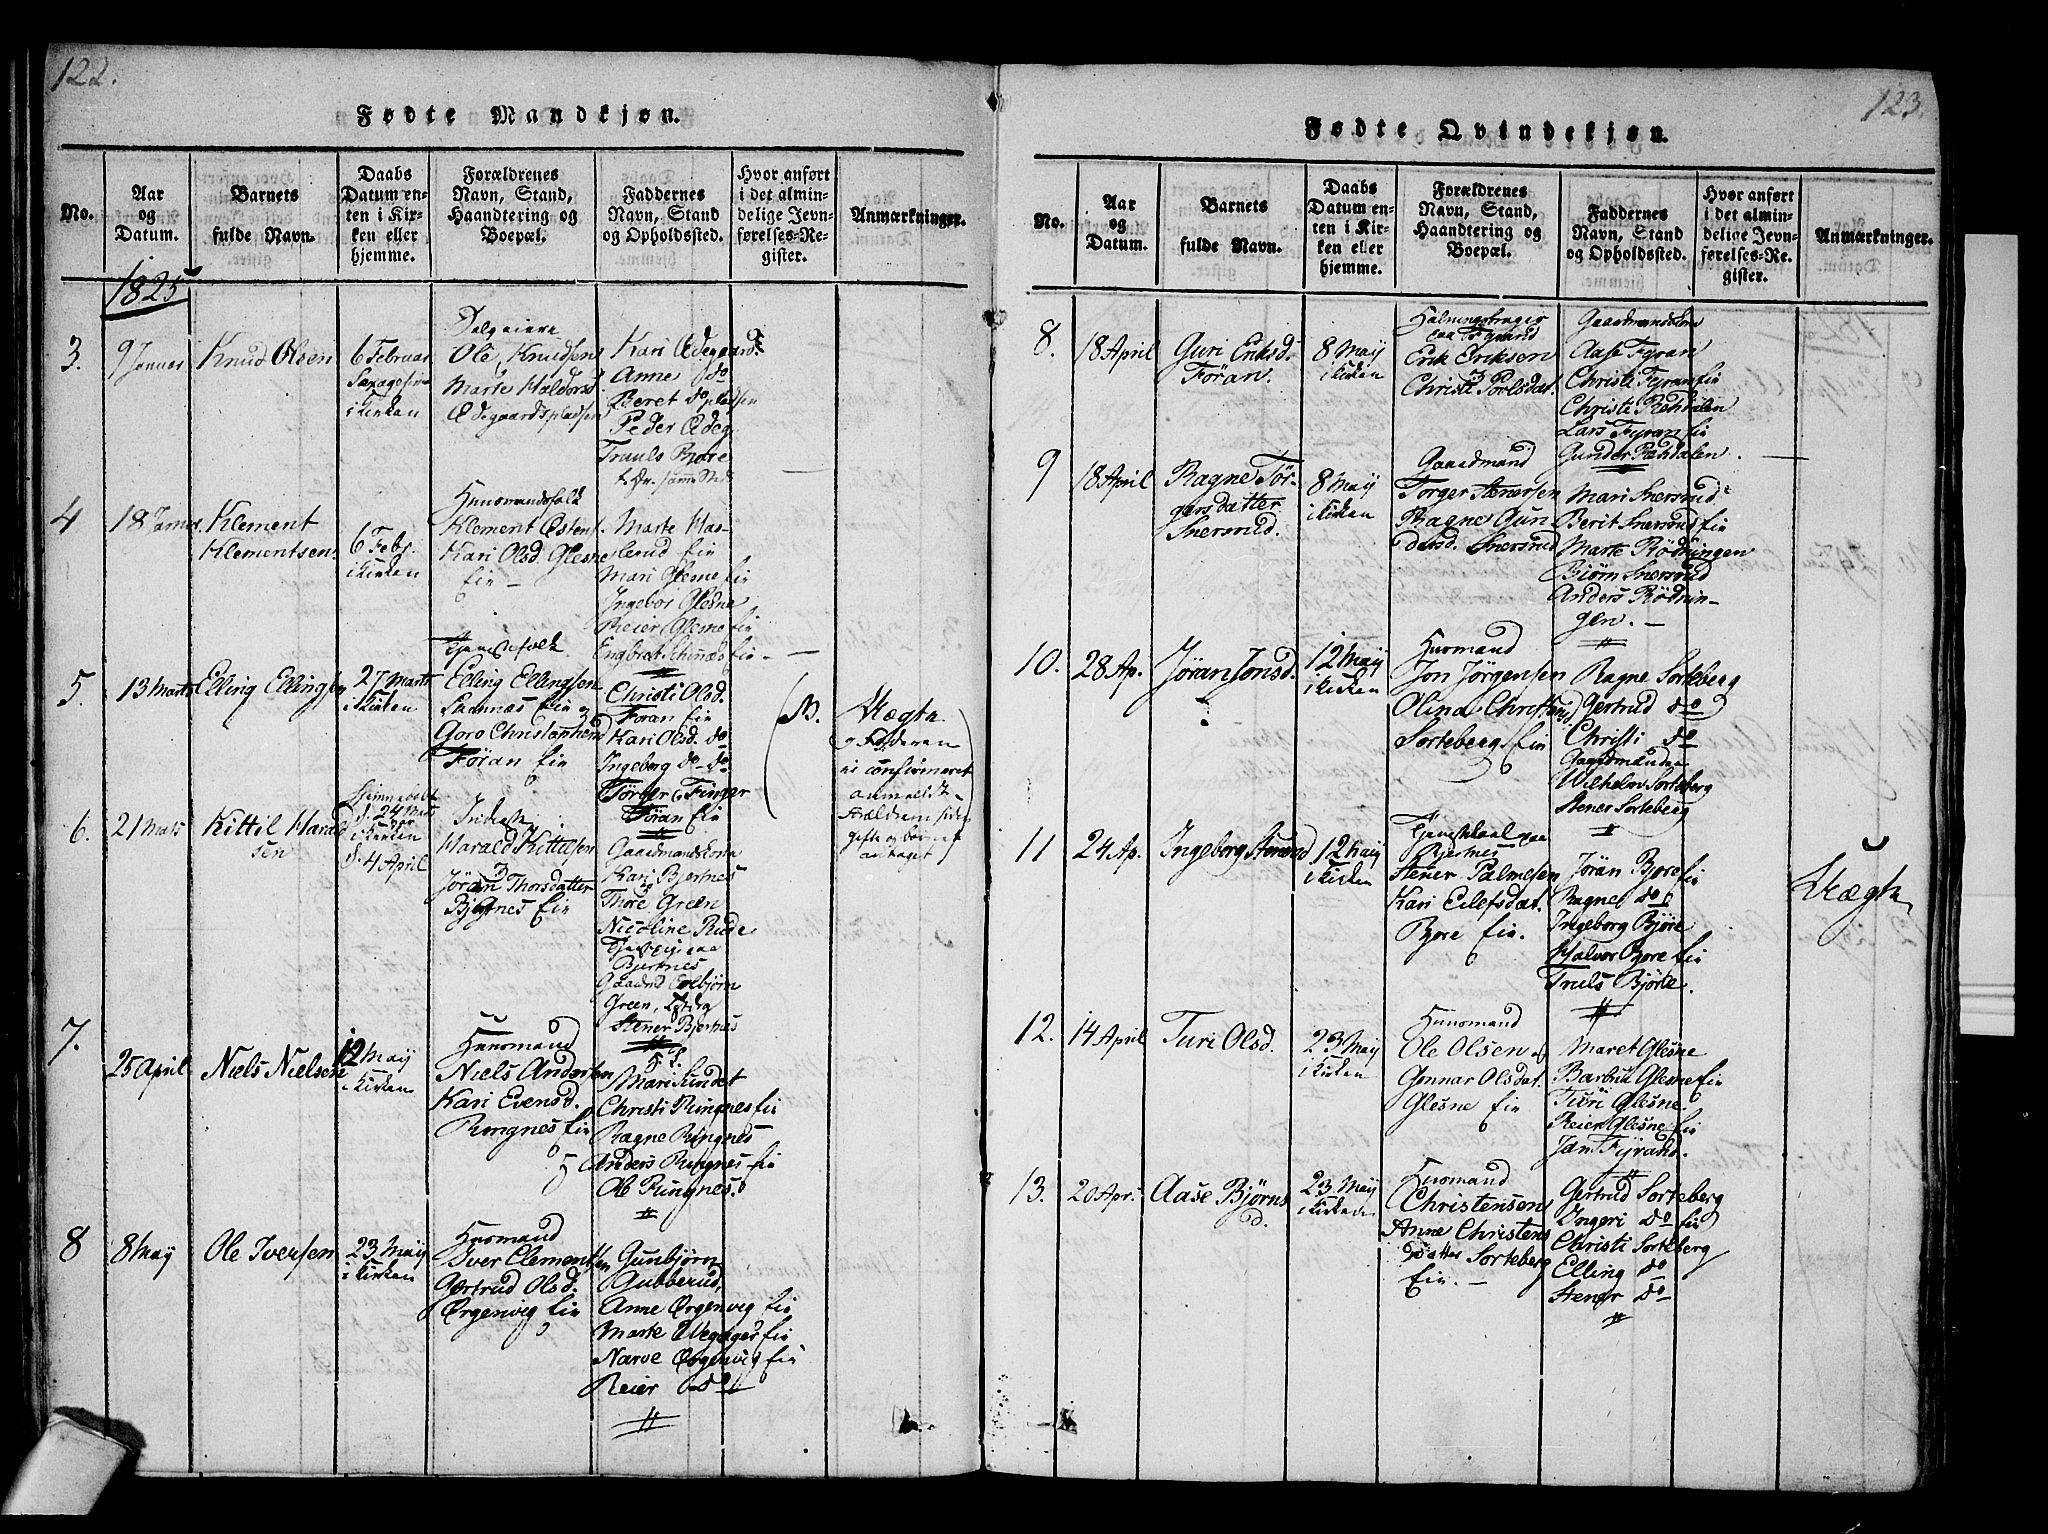 122.
Fødte Mandkjøn.
No.
Aar
og
Datum.
Barnets
fulde Navn.
Daabs
Datum en-
ten i Kir-
ken eller
hjemme.
Forældrenes
Navn, Stand,
Haandtering og
Boepæl.
Faddernes
Navn, Stand
og Opholdssted.
Hvor anført
i det almin-
delige Jevn-
førelses-Re-
gister.
Anmærkninger.
1825
3.
9 Januar
Knud Olsen
6 Februar
i Kirken
Ole Knudsen
Marte Haldorsd
Ødegaardspladsen
Kari Ødegaard
Anne do
Beret do pladsen
Peder Ødeg.
Truuls Bjore
4
18 Januar
Klement
Klementsen
6 Feb.
i Kirken
Huusmandsfolk
Klement Østens.
Kari Olsd. Glesne
Ein
Marte Has-
lerud Ein
Mari Glesne Ein
Ingebor Glesne
Reier Glesne Ein
5.
13 Marts
Elling Ellingsen
27 Marts
i Kirken
Tjenestefolk
Elling Ellingsen
Goro Christophersd
Föran Ein
Christi Olsd.
Foran Ein
Kari Olsd. do
Ingeborg do do
Törger Finger
Föran Ein
NB.
Uægte
Faderen
ei confirmeret
anmeldt
6.
21 Marts
Kittil Harald
sen
d. 24 Marts
i Kirken
d. 4 April
Harald Kittilsen
Jöran Thorsdatter
Bjertnes Ein
Gaardmandskone
Kari Bjertnes
Thore Green
Nicoline Rude
Bjertnes
Green,
Stener Bjertnes
7.
25 April
Niels Nielsen
12 Maij
i Kirken
Huusmand
Niels Andersen
Kari Evensd.
Ringnes Ein
Mari Lindet
Christi Ringnes Ein
Ragne Ringnes
Anders Ringnes Ein
Ole Ringnes.
8
8 Maij
Ole Iversen
23 Maij
i Kirken
Huusmand
Iver Clementsen
Gertrud Olsd.
Ørgenvig Ein
Gunbjørn
Gubberud,
Anne Ørgenvig Ein
Marte Ein
Narve Ørgenvig Ein
Reier do
123.
Fødte Qvindekjøn.
No.
Aar
og
Datum.
Barnets
fulde Navn.
Daabs
Datum en-
ten i Kir-
ken eller
hjemme.
Forældrenes
Navn, Stand,
Haandtering og
Boepæl.
Faddernes
Navn, Stand
og Opholdssted.
Hvor anført
i det almin-
delige Jevn-
førelses-Re-
gister.
Anmærkninger.
8.
18 April
Guri Eriksd.
Föran.
8 Maij
i Kirken
Erik Eriksen
Christi Povlsdat.
Gaardmandskone
Aase Fyran
Christi Fyran Ein
Christi
Lars Fyran Ein
Gunder
9
18 April
Ragne Tör-
gersdatter
Snersrud.
8 Maij
i Kirken
Gaardmand
Torger Stenersen
Ragne Gun
dersd. Snersrud
Mari Snersrud
Berit Snersrud Ein
Marte Rödningen
Biörn Snersrud
Anders Rödnin-
gen.
10.
28 Ap.
Jöran Jonsd.
12 Maij
i Kirken
Huusmand
Jon Jörgensen
Olina Christensd
Sorteberg Ein
Ragne Sorteberg
Gertrud do
Christi do
Wilhelm Sorteberg
Stener Sorteberg
11
24 Ap.
Ingeborg Stenersd
12 Maij
i Kirken
Bjertnes
Stener Palmesen
Kari Eilefsdat.
Bjore Ein.
Jöran Bjore Ein
Ragne do
Ingeborg Björe
Halvor Bjore Ein
Truls Björe.
Uægte
12.
14 April
Turi Olsd.
23 Maij
i Kirken
Huusmand
Ole Olsen
Gonnar Olsdat.
Glesne Ein
Maret Glesne
Barbru Glesne Ein
Turi Glesne
Reier Glesne Ein
Jan Fyrand.
13.
20 Apr.
Aase Björns
d.
23 Maij
i Kirken
Huusmand
Christensen
Anne Christens
datter Sorteberg
Ein.
Gertrud Sorteberg
Ingeri do Ein
Christi Sorteberg
Elling do
Stener do